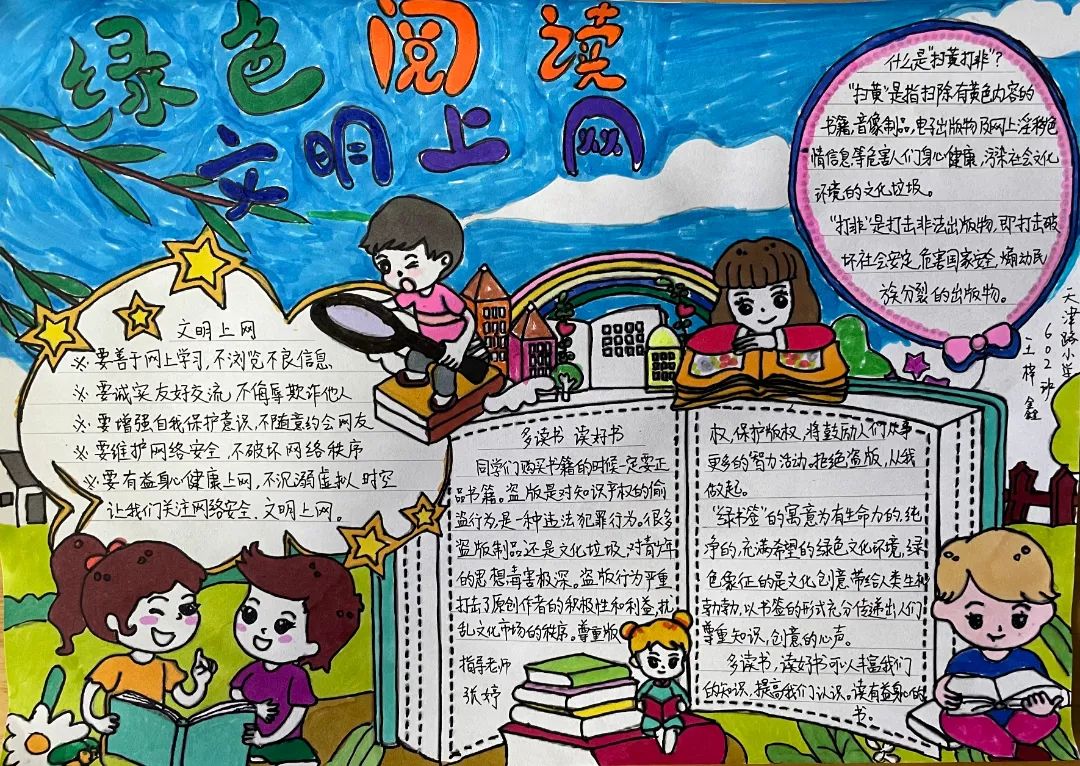 绿色阅读
文明上网
什么是“扫黄打非”?
“扫黄”是指扫除有黄色内容的
书籍,音像制品,电子出版物及网上淫秽色
情信息等危害人们身心健康,污染社会文化
环境的文化垃圾。
“打非”是打击非法出版物,即打击破
坏社会安定,危害国家安全,煽动民
族分裂的出版物。
天津路小学
602班
王梓鑫
文明上网
※要善于网上学习,不浏览不良信息
※要诚实友好交流,不侮辱欺诈他人
※要增强自我保护意识,不随意约会网友
※要维护网络安全,不破坏网络秩序
※要有益身心健康上网,不沉溺虚拟时空
让我们关注网络安全.文明上网。
多读书 读好书
同学们购买书籍的时候一定要正
品书籍。盗版是对知识产权的偷
盗行为,是一种违法犯罪行为。很多
盗版制品还是文化垃圾,对青少年
的思想毒害极深。盗版行为严重
打击了原创作者的积极性和利益,扰
乱文化市场的秩序。尊重版
指导老师
张婷
权,保护版权,将鼓励人们从事
更多的智力活动。拒绝盗版,从我
做起。
“绿书签”的寓意为有生命力的,纯
净的,充满希望的绿色文化环境,绿
色象征的是文化创意,带给人类生机
勃勃,以书签的形式充分传递出人们
尊重知识,创意的心声。
多读书,读好书可以丰富我们
的知识,提高我们认识。读有益身心的
书。